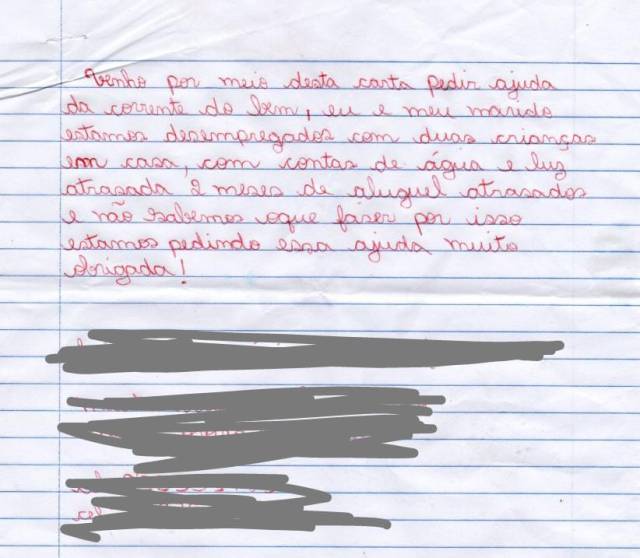 Venho por meio desta carta pedir ajuda
da corrente do bem, eu e meu marido
estamos desempregados com duas crianças
em casa, com contas de água e luz
atrasada 2 meses de aluguel atrasados
e não sabemos oque fazer por isso
estamos pedindo essa ajuda muito
obrigada!